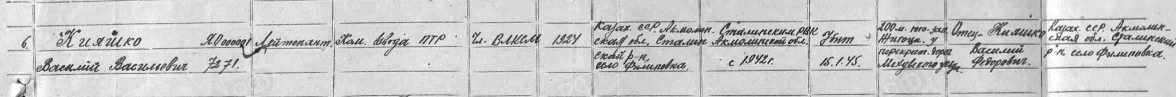 6. Кияшко
Василий Васильевич
7271.
Лейтенант.
Ком. взвода ПТР
Чл. ВЛКСМ
1924
Казах. ССР, Акмолин-
ская обл, Сталин
ский р-н,
село Филиповка.
Сталинским РВК
Акмолинской обл.
с 1942г.
Убит
15.1.45.
200 м. юго-зап.
перекрест.
Отец-Кияшко
Василий
Федорович.
Казах. ССР, Акмолин-
ская обл. Сталинский
р-н село Филиповка.